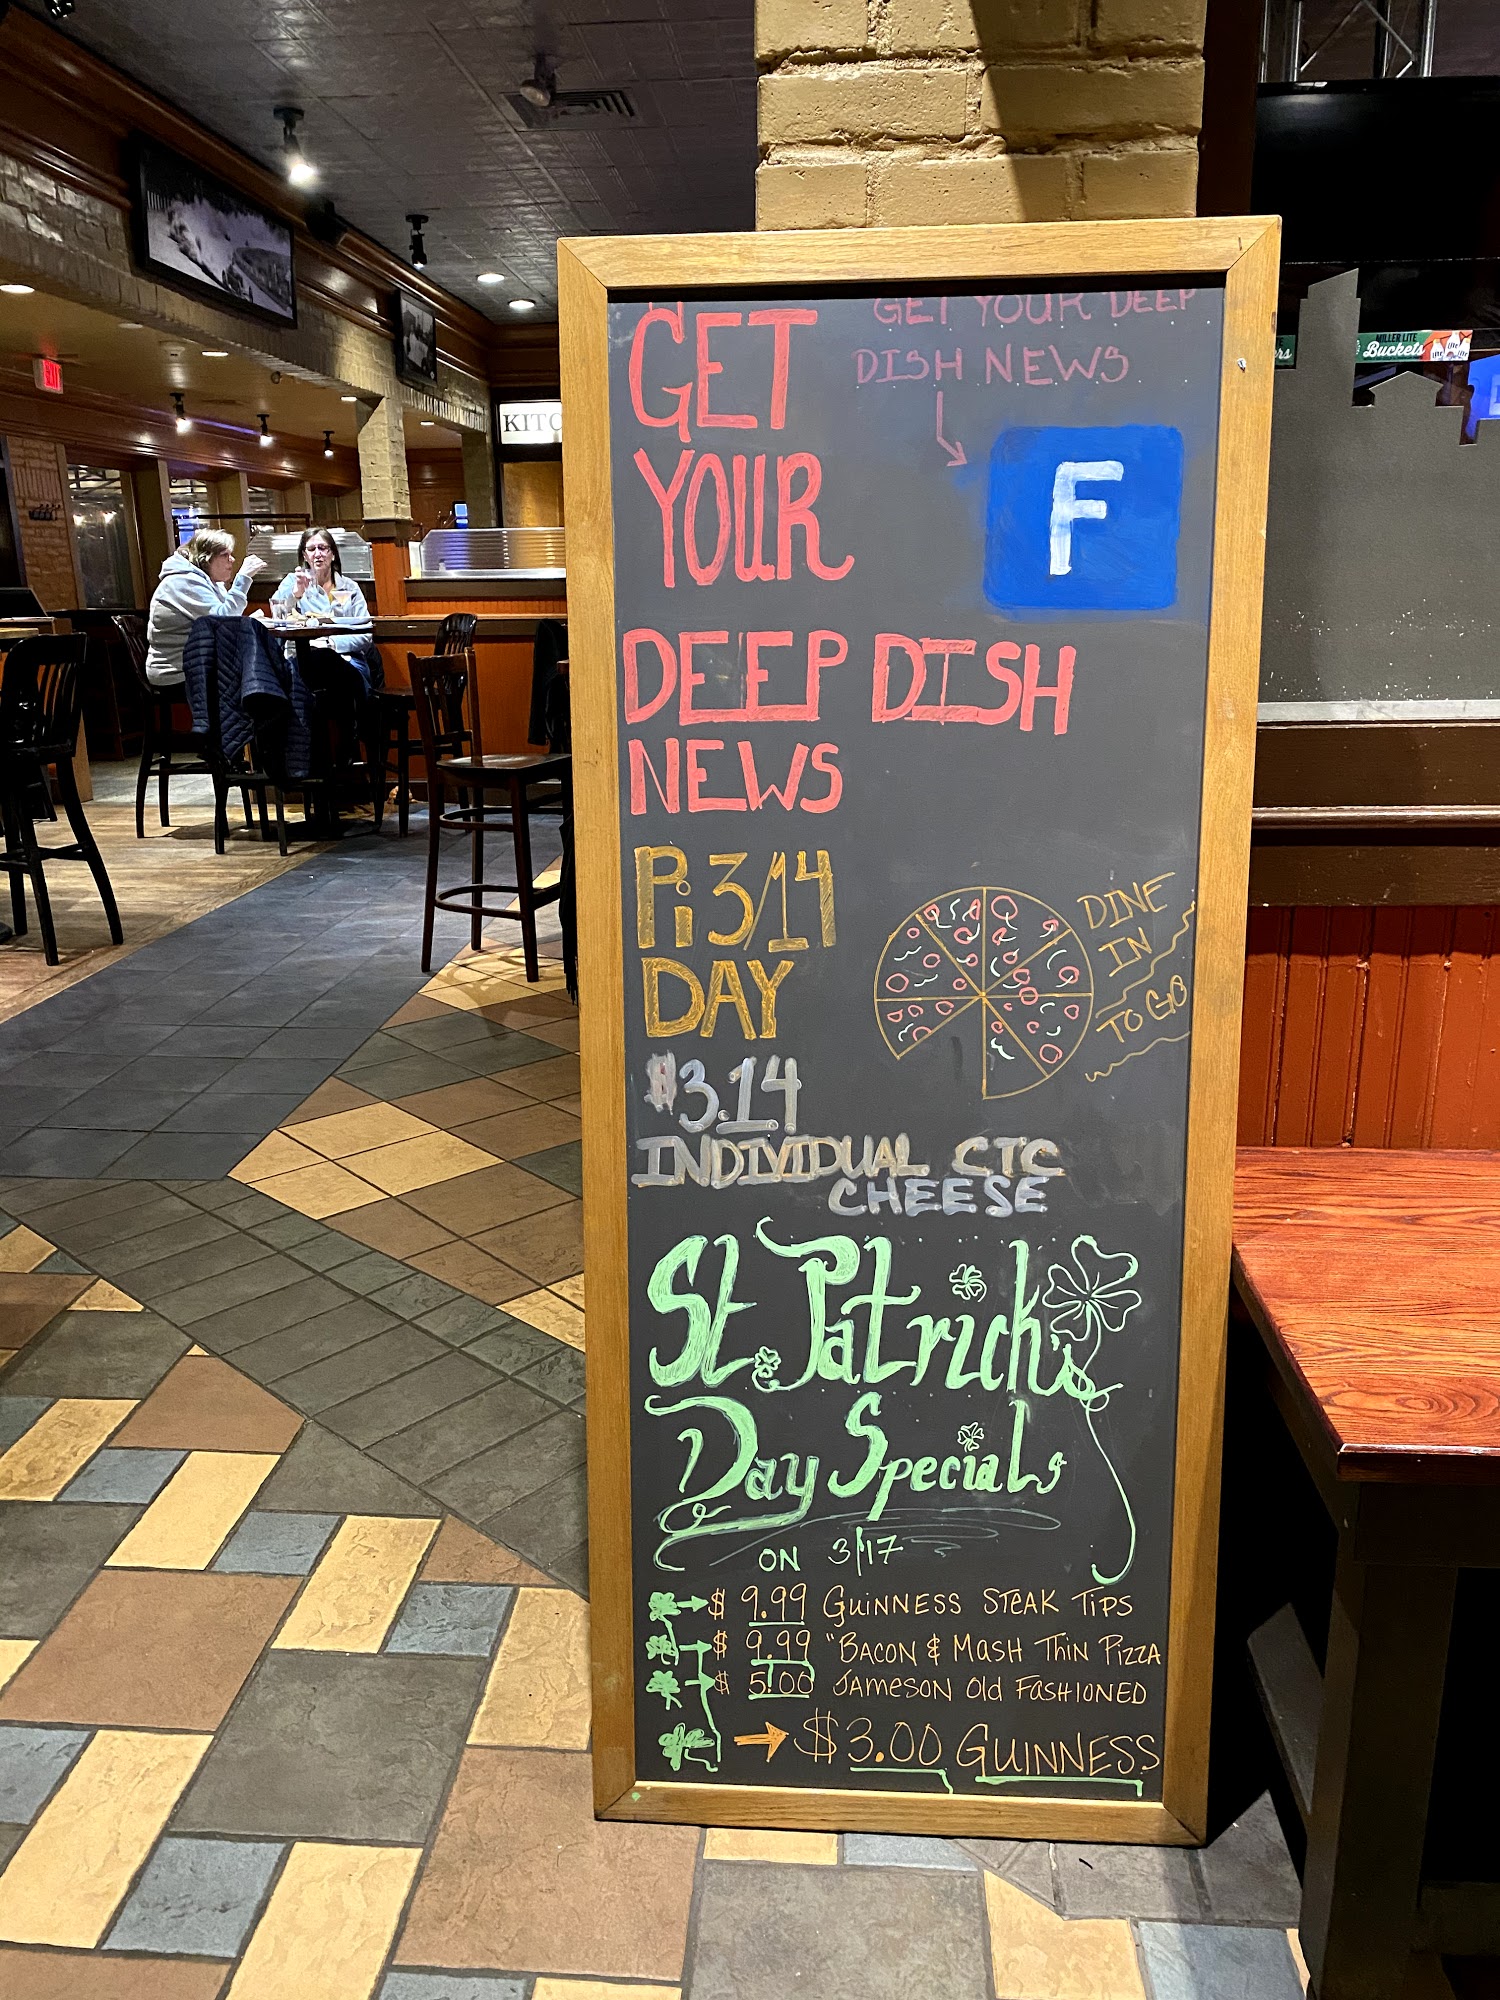 GET
YOUR
DEEP DISH
NEWS
GET YOUR DEEP
DISH NEWS
F
Pi 3/14
DAY
DINE
IN
TO GO
$3.14
INDIVIDUAL CTC
CHEESE
St. Patrick's
Day Specials
ON 3/17
$ 9.99 GUINNESS STEAK TIPS
$ 9.99 "BACON & MASH THIN PIZZA
$ 5.00 JAMESON Old FASHIONED
$3.00 GUINNESS
KITC
EXIT
MILLER LITE
Buckets
ers